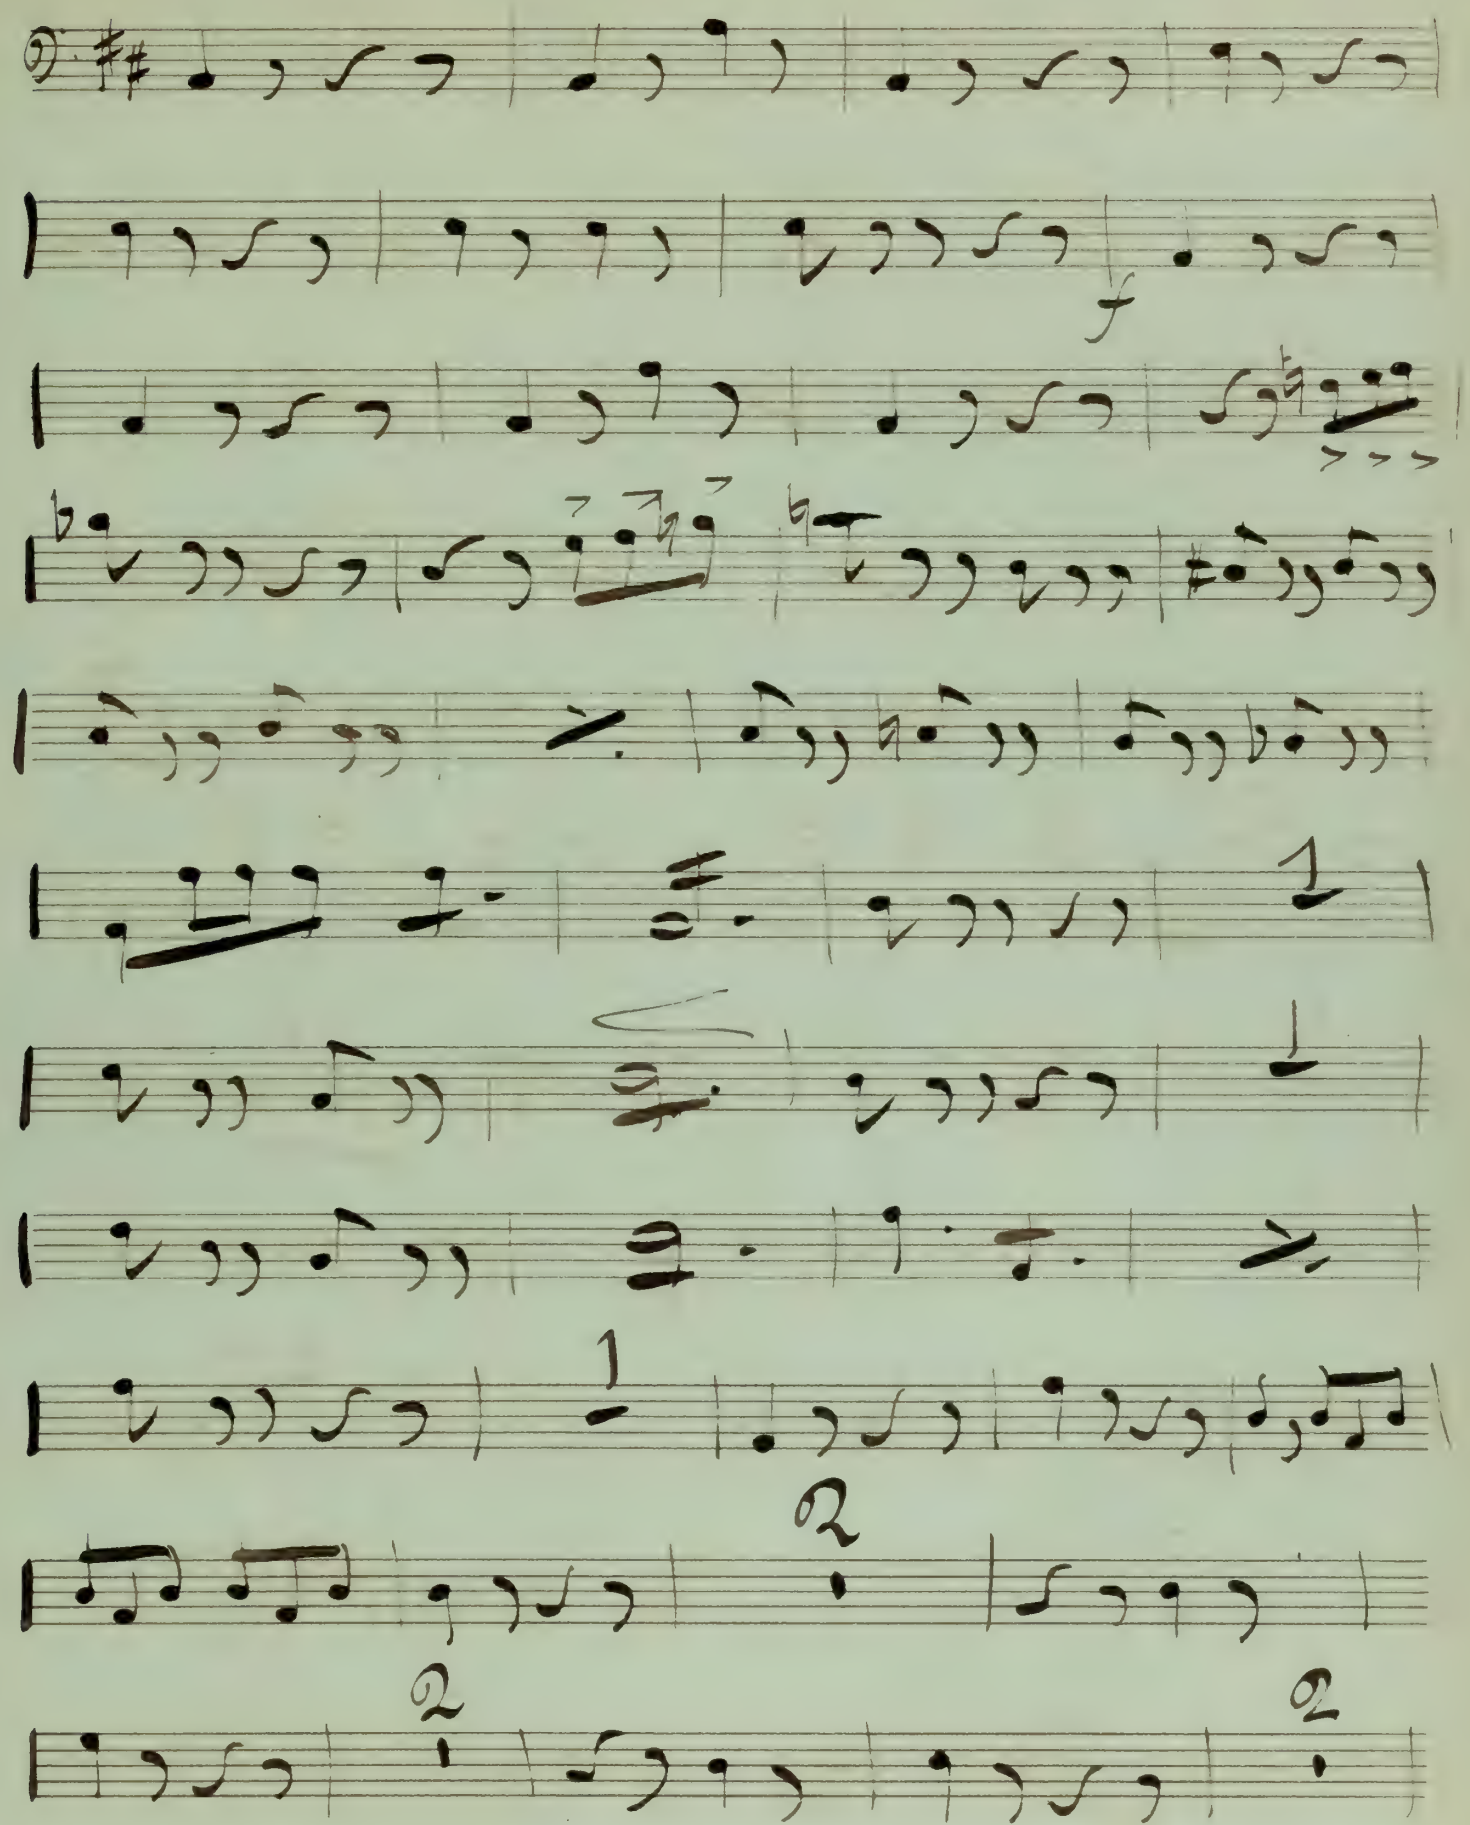 f
1
1
1
2
2 2